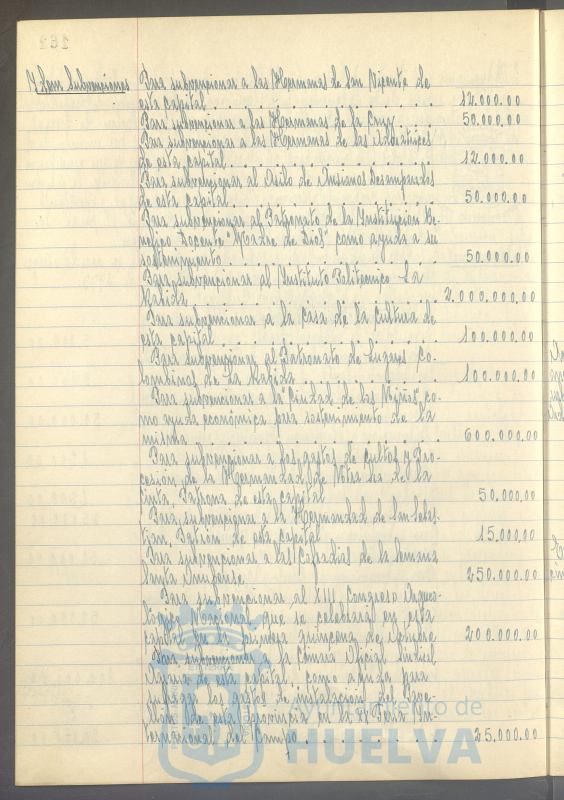 Para subvencionar a las Hermanas de San Vicente de
esta capital 12.000.00
Para subvencionar a las Hermanas de la Cruz 50.000.00
Para subvencionar a las Hermanas de las
de esta capital 12.000.00
Para subvencionar al Asilo de Ancianos Desamparados
de esta capital 50.000.00
Para subvencionar al Patronato de la Institución Be-
néfico Docente "Madre de Dios" como ayuda a su
sostenimiento 50.000.00
Para subvencionar al Instituto Politécnico La
Rabida 2.000.000,00
Para subvencionar a la Casa de la Cultura de
esta capital 100.000.00
Para subvencionar al Patronato de Lugares Co-
lombinos de La Rabida 100.000.00
Para subvencionar a la "Ciudad de los Niños", co-
mo ayuda económica para sostenimiento de la
misma 600.000.00
Para subvencionar a los gastos de cultos y Pro-
cesión de la Hermandad de Ntra Sra de la
Cinta, Patrona de esta capital 50.000,00
Para subvencionar a la Hermandad de San Sebas-
tian, Patrón de esta capital 15.000,00
Para subvencionar a las Cofradias de la Semana
Santa Onubense 250.000.00
Para subvencionar al XIII Congreso Arqueo-
lógico Nacional que se celebrará en esta
capital en la primera quincena de Octubre 200.000,00
Para subvencionar a la Cámara Oficial Sindical
Agraria de esta capital, como ayuda para
sufragar los gastos de instalación del Pabe-
llón de esta provincia en la Feria In-
ternacional del Campo 25.000.00
Ayuntamiento de
HUELVA